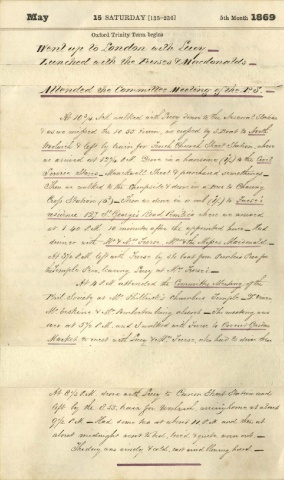 May 15 SATURDAY [135-230] 5th Month 1869
Oxford Trinity Term begins
Went up to London with Lucy
Lunched with the Turses & Macdonalds
Attended the Committee Meeting of the P.S.
At 10 3/4 I walked with Lucy down to the Arsenal Station
& as we missed the 10 55 train, we crossed by Boat to North
Woolwich & left by train for Fenchurch Street Station, where
we arrived at 12 1/4 P.M. Drove in a hansom to the Civil
Service Stores Haymarket Street & purchased somethings
Then we walked to the Chemists & drove in a cab to Charing
Cross Station Then we drove in a cab to
residence 127 St George's Road Pimlico where we arrived
at 1.40 P.M. 10 minutes after the appointed hour. Had
dinner with Mr & Mrs Turse, Mr & the Misses Macdonald
At 3 1/2 P.M. left with Turse by the boat from Pimlico Pier for
the Temple Pier leaving Lucy at Mrs Turse's
At 4 P.M. attended the Committee Meeting of the
Phil. Society at Mr Philbrick's Chambers Temple
Mr Erskine & Mr Pemberton being absent. The meeting was
over at 5 1/2 P.M. and I walked with Turse to Covent Garden
Market to meet with Lucy & Mrs Turse, who had to
At 8 1/2 P.M. drove with Lucy to Cannon Street Station and
left by the 8.55 train for Woolwich arriving home at about
9 1/2 P.M. Had some tea at about 10 P.M. and then at
about midnight went to bed, tired & quite worn out
The day was windy & cold, east wind blowing hard